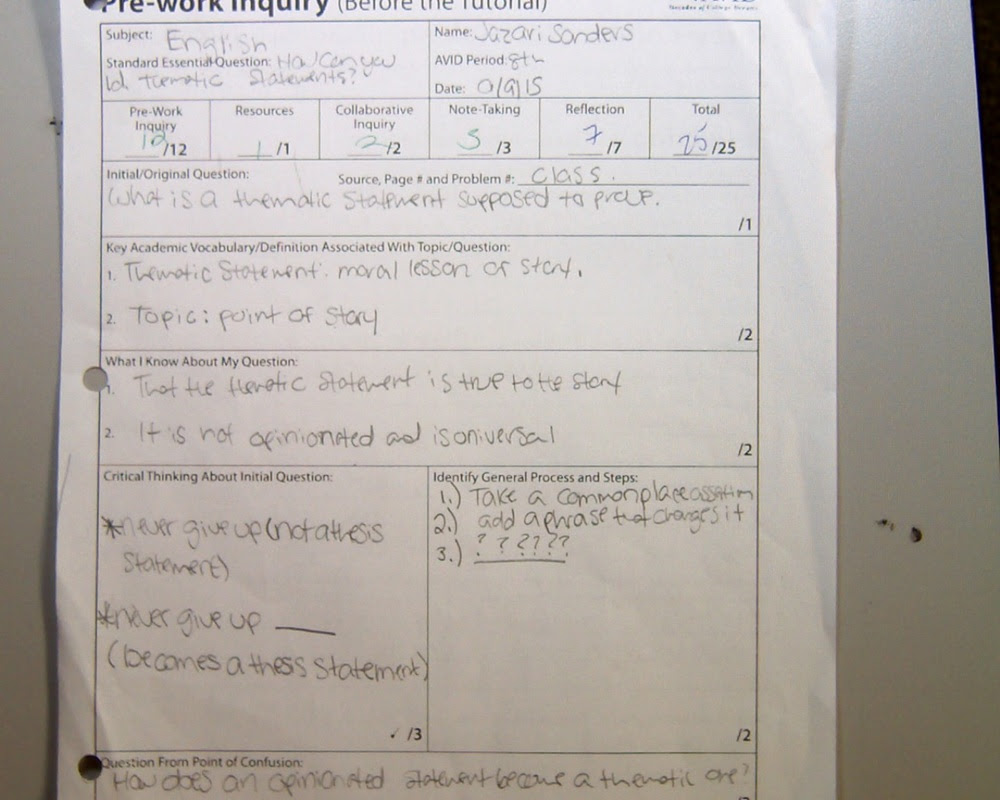 Pre-work Inquiry (Before the Tutorial)
Decades of College Dreams
Subject: English
Name: Jazari Sanders
Standard Essential Question: How can you
Id. thematic statements?
AVID Period: 8th
Date: 0/9/15
Pre-Work Inquiry 12/12
Resources 1/1
Collaborative Inquiry 2/2
Note-Taking 3/3
Reflection 7/7
Total 25/25
Initial/Original Question: Source, Page # and Problem #: class.
What is a thematic statement supposed to prove.
/1
Key Academic Vocabulary/Definition Associated With Topic/Question:
1. Thematic Statement: moral lesson of story.
2. Topic: point of story
/2
What I Know About My Question:
1. That the themetic statement is true to the story
2. It is not opinionated and is oniversal
/2
Critical Thinking About Initial Question:
*never give up (not a thesis
statement)
*never give up ____
(becomes a thess statement)
✓ /3
Identify General Process and Steps:
1.) Take a commonplace assertion
2.) add a phrase that changes it
3.) ? ? ? ? ? ?
/2
Question From Point of Confusion:
How does an opinionated statement become a thematic one?